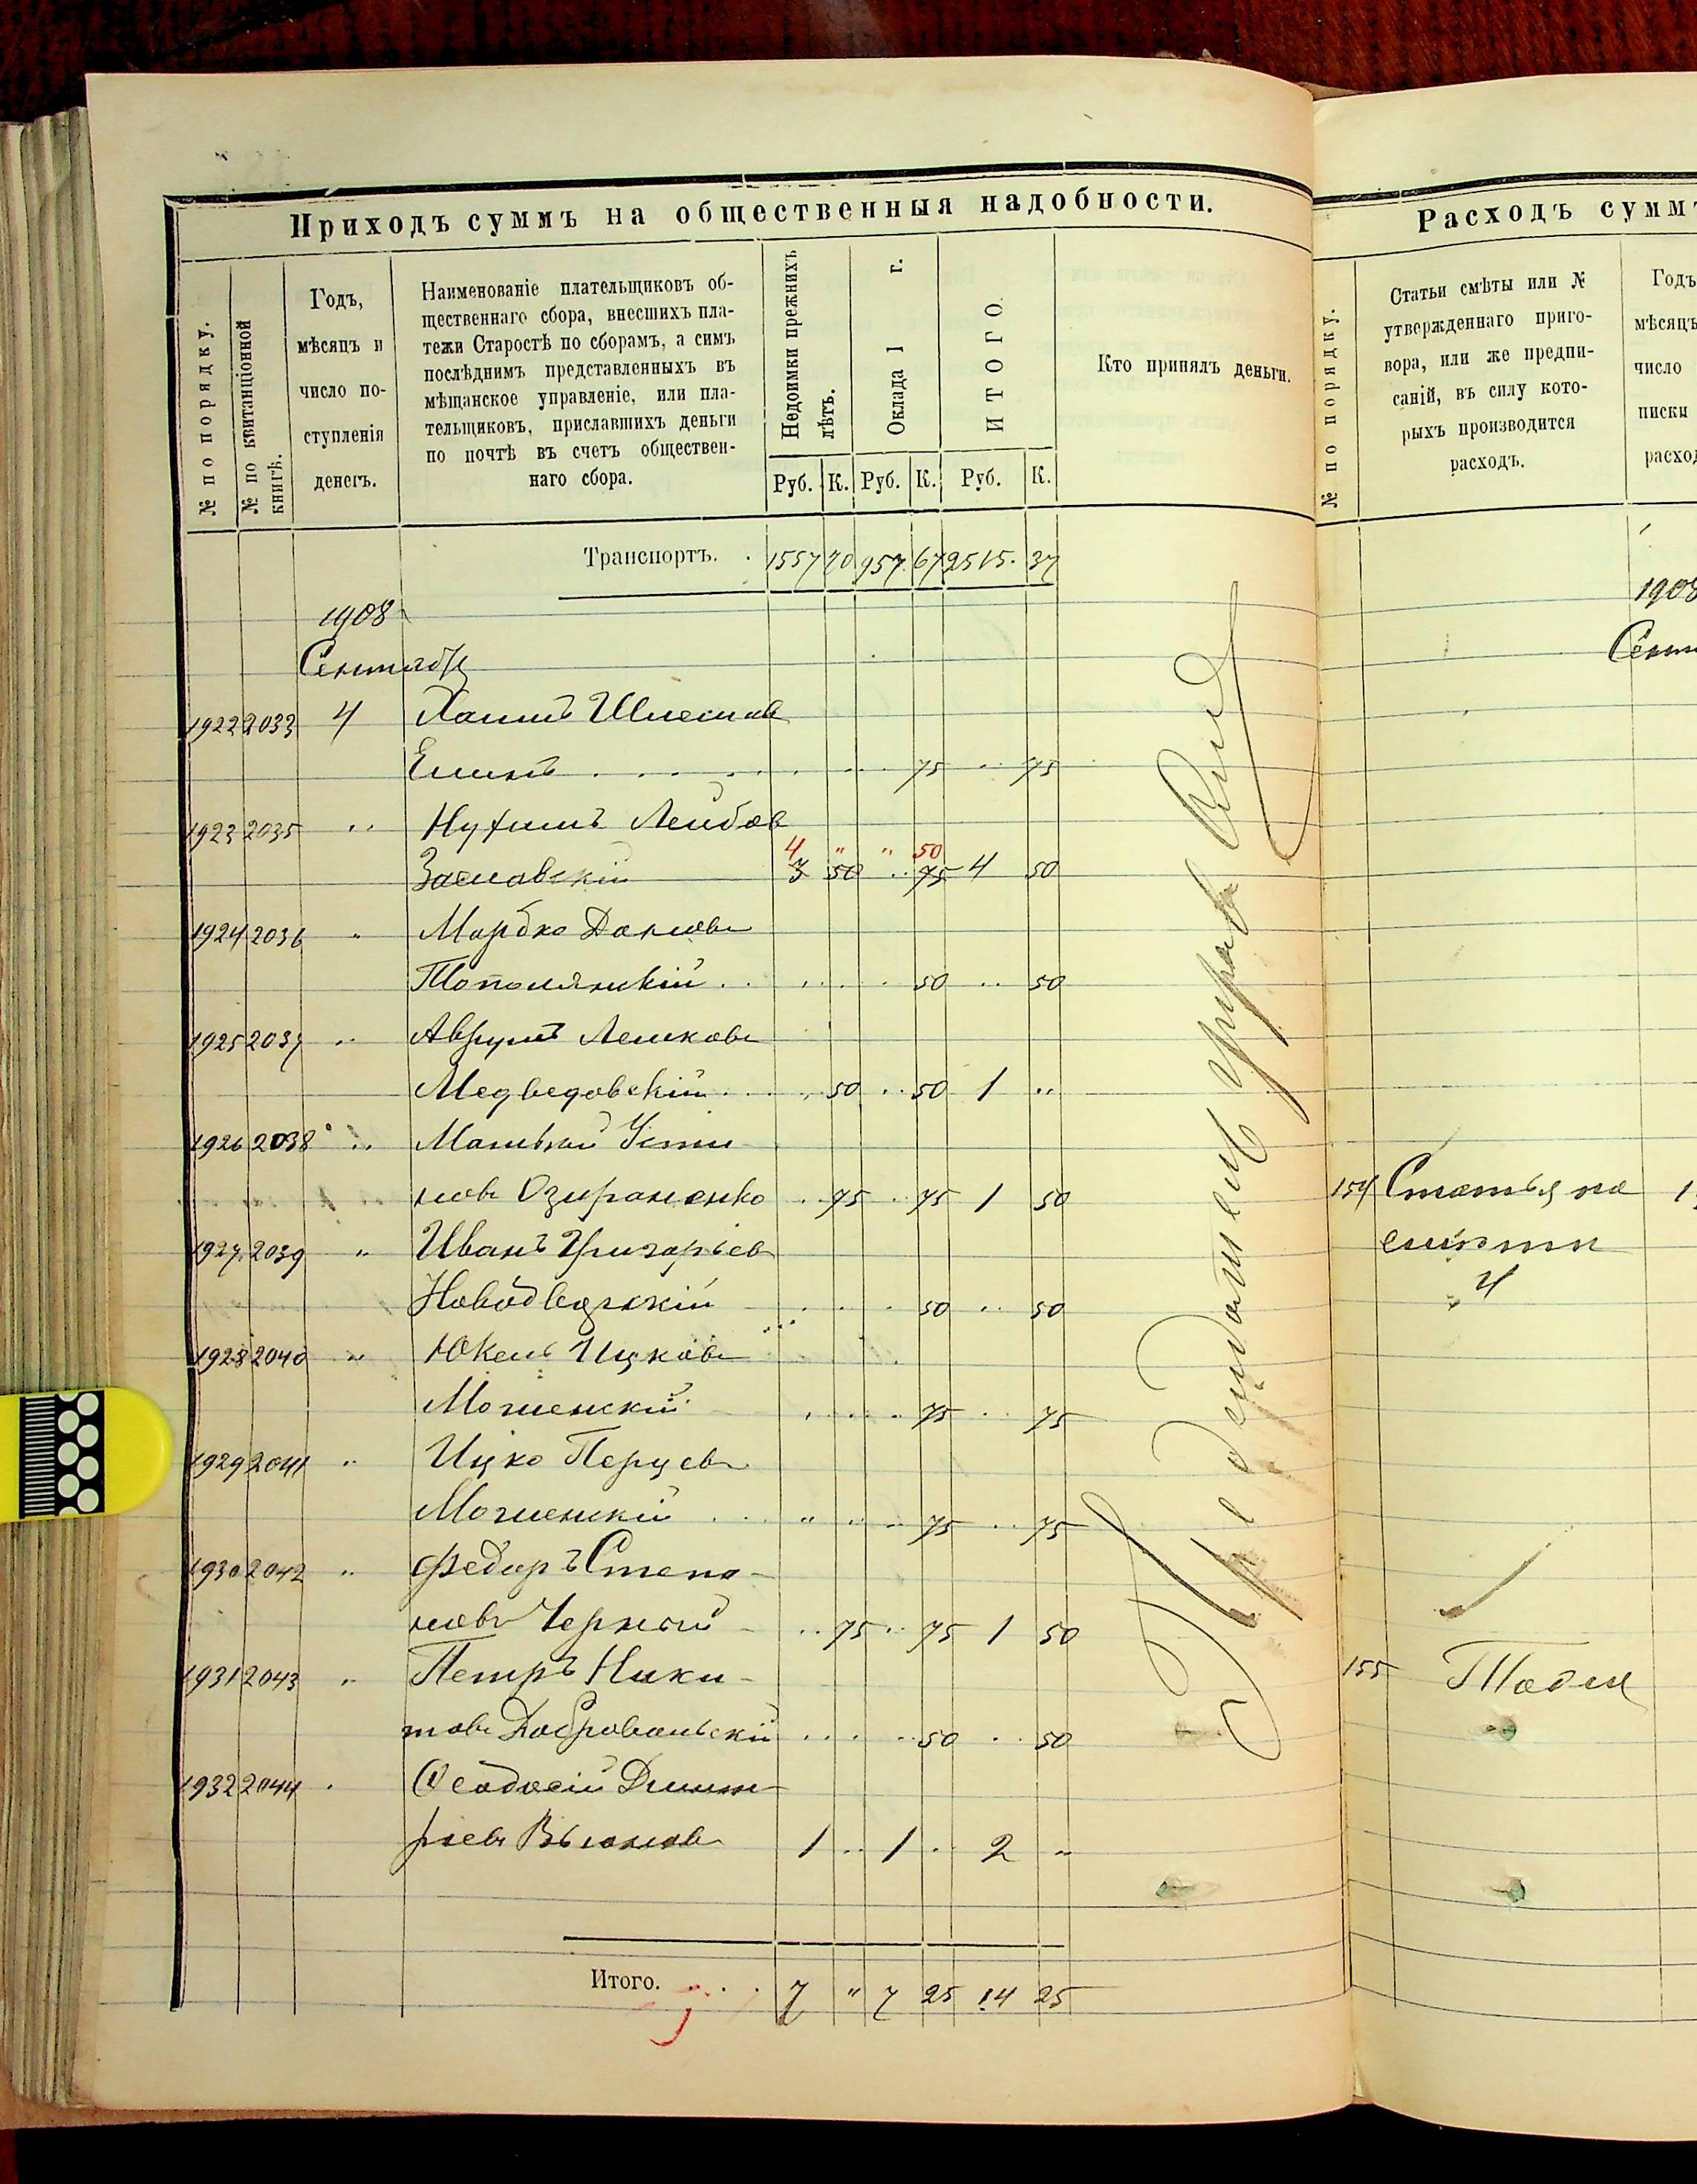 Приходъ суммъ на общественныя надобности.
№ по порядку.
№ по квитанціонной книгѣ.
Годъ,
мѣсяцъ и
число по-
ступленія
денегъ.
Наименованіе плательщиковъ об-
щественнаго сбора, внесшихъ пла-
тежи Старостѣ по сборамъ, а симъ
послѣднимъ представленныхъ въ
мѣщанское управленіе, или пла-
тельщиковъ, приславшихъ деньги
по почтѣ въ счетъ обществен-
наго сбора.
Недоимки прежнихъ лѣтъ.
Оклада 1 г.
ИТОГО.
Руб. К. Руб. К. Руб. К.
Кто принялъ деньги.
Транспортъ. 1557 70 957 67 2515 37
1908
Сентябр
1922 2033 4
75 75
1923 2035 " Нухимъ Лейбов
4 " " 50
Заславскій 3 50 .. 75 4 50
1924 2036 "
Тополянскій 50 .. 50
1925 2037 " Аврумъ Лейкова
Медведовскій 50 .. 50 1 ..
1926 2038 "
нов Озираненко .. 75 .. 75 1 50
1927 2039 " Иванъ Григорьев
Новодворскій 50 .. 50
1928 2040 " Юкель Ицков
Могиленскій 75 .. 75
1929 2041 " Ицко Перцев
Могиленскій 75 .. 75
1930 2042 " Федоръ Степа-
нов Черный .. 75 .. 75 1 50
1931 2043 " Петръ Ники-
тов Добровольскій 50 . 50
1932 2044 . Феодосій Дмит-
риев Вьюнов 1 .. 1 .. 2 "
Итого. 7 " 7 25 14 25
Расходъ суммъ
№ по порядку.
Статьи смѣты или №
утвержденнаго приго-
вора, или же предпи-
саній, въ силу кото-
рыхъ производится
расходъ.
Годъ
мѣсяцъ
число
писки
расход
1908
Сент
154 Статья по
смѣти
4
155